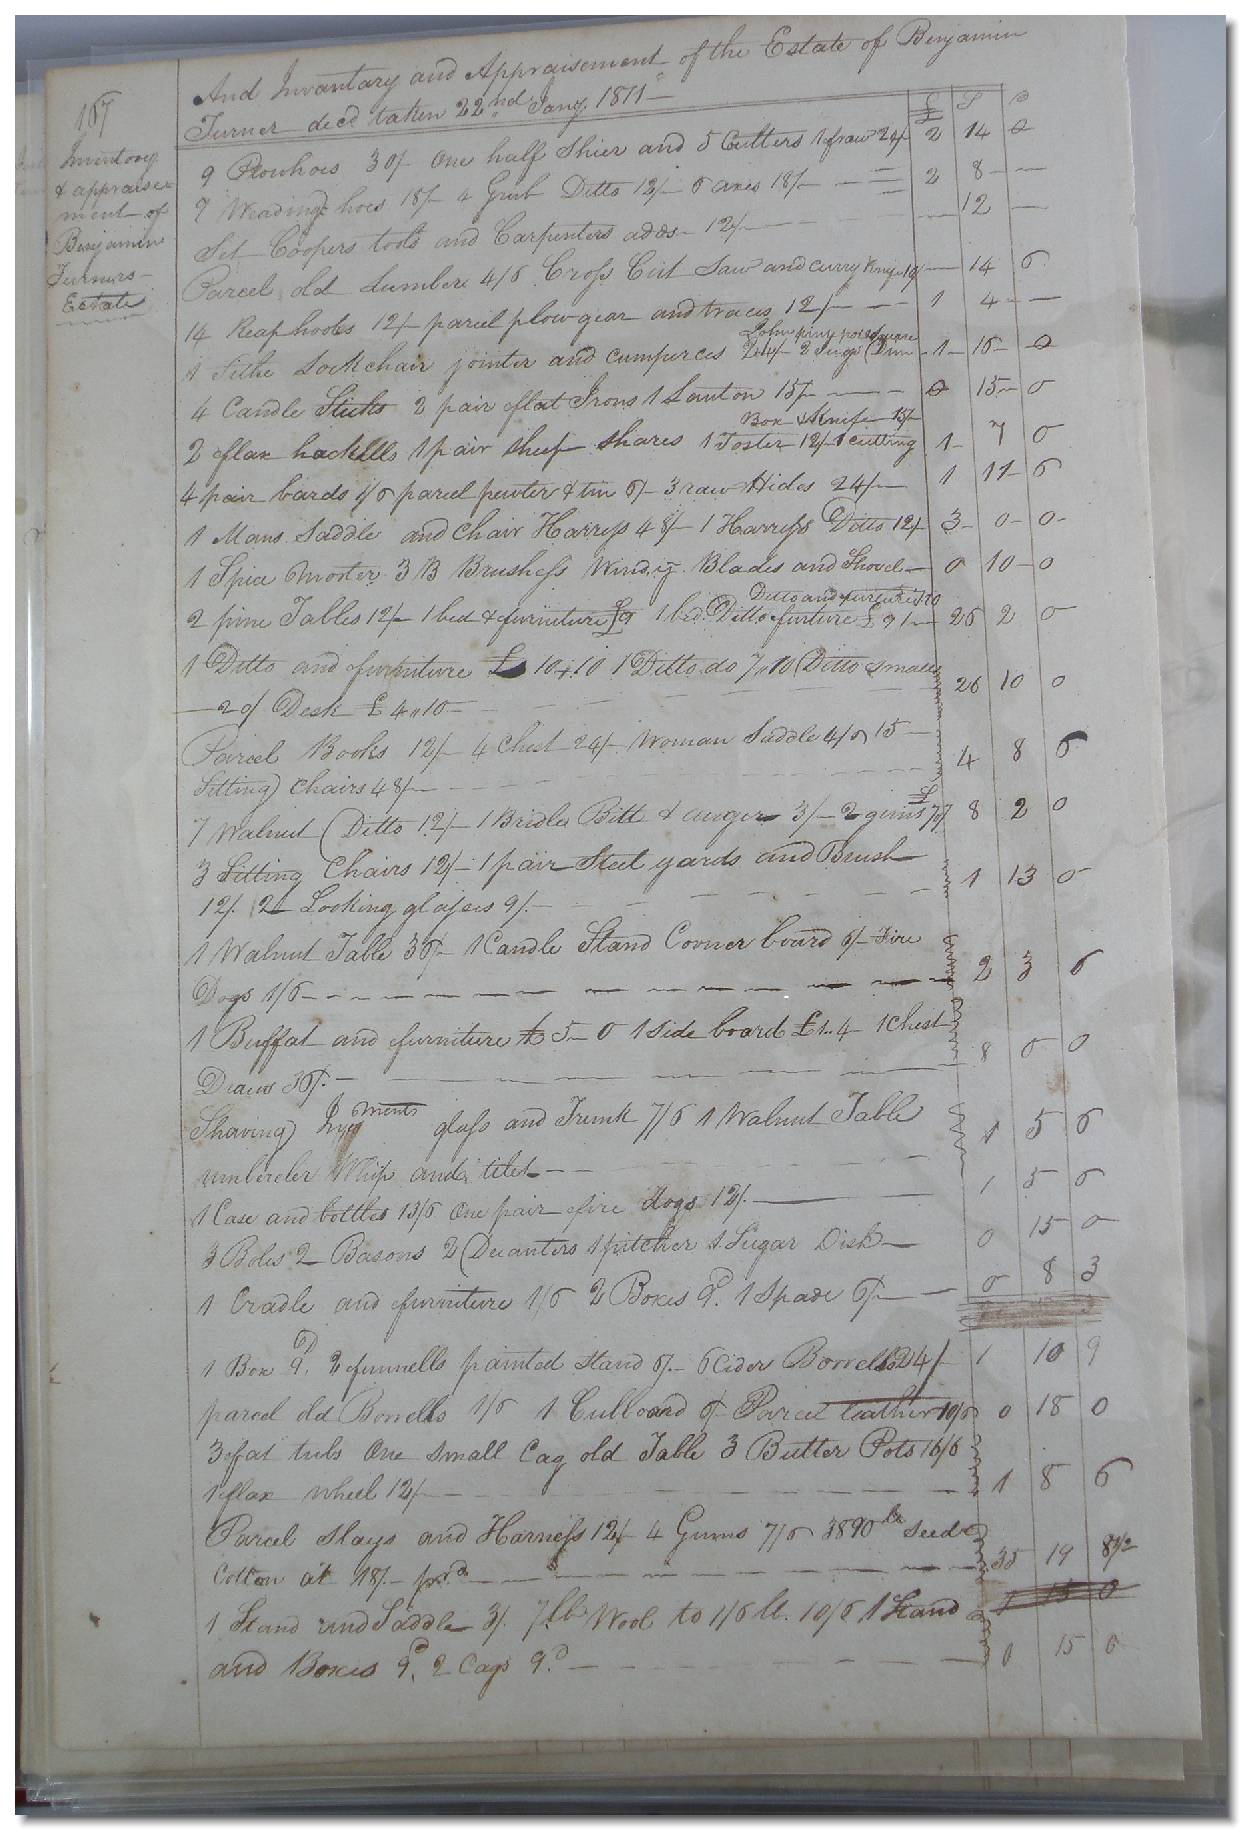 167
Inventory
& appraise
ment of
Benjamin
Turners
Estate
And Inventary and Appraisement of the Estate of Benjamin
Turner decd taken 22nd Jany. 1811
£ S D
9 Plowhoes 30/ One half Shier and 5 Cutters 1 fraw 24/ 2 14 0
9 Weading hoes 18/ 4 Grub Ditto 12/ 6 axes 18/ 2 8
Set Coopers tools and Carpenters adds 12/ 12
Parcel old Lumbere 4/6 Cross Cut Saw and curry knife 10/ 14 6
14 Reap hooks 12/ parcel plow gear and traces 12/ 1 4
1 Sithe Lock chair jointer and cumperces 24/ 2 Jugs 1 15 0
4 Candle Sticks 2 pair flat Irons 1 Lanton 15/ 0 15 0
Box & Knife 15/
2 flax hackells 1 pair sheep shares 1 Toster 12/ 1 cutting 1 7 0
4 pair bards 1/6 parcel pewter & tin 6/ 3 raw Hides 24/ 1 11 6
1 Mans Saddle and Chair Harress 48/ 1 Harress Ditto 12/ 3 0 0
1 Spice Morter 3 B Brushess Winding Blades and Shovel 0 10 0
Ditto and
2 pine Tables 12/ 1 bed & furniture £9 1 bed Ditto furture £91 26 2 0
1 Ditto and furniture £ 10,,10 1 Ditto do 7,,10 Ditto smaler
2 of Desk £4,,10 26 10 0
Parcel Books 12/ 4 Chest 24/ Woman Saddle 4/6 15
Sitting Chairs 48/ 4 8 6
7 Walnut Ditto 12/ 1 Bridle Bitt & auger 3/ 2 guns £7 8 2 0
3 Sitting Chairs 12/ 1 pair Steel yards and Brush
12/. 2 Looking glasses 9/. 1 13 0
1 Walnut Table 36/ 1 Candle Stand Corner board 6/ Fire
Dogs 1/6 2 3 6
1 Buffat and furniture £5 0 1 Side board £1..4 1 Chest
Draws 36/. 8 0 0
Shaving ments glass and Trunk 7/6 1 Walnut Table
umbreler Whip and tilet 1 5 6
1 Case and bottles 13/6 One pair fire dogs 12/. 1 5 6
3 Boles 2 Basons 2 Decanters 1 pitcher 1 Sugar Dish 0 15 0
1 Cradle and furniture 1/6 2 Boxes 9d. 1 Spade 6/ 0 8 3
1 Box 9d. 2 funnells painted Stand 6/ 6 Cider Borrells 24/ 1 10 9
parcel old Borrells 1/6 1 Cubboard 6/ Parcel leather 10/6 0 18 0
3 fat tubs One small Cag old Table 3 Butter Pots 16/6
1 flax wheel 12/ 1 8 6
Parcel Slays and Harness 12/ 4 Gums 7/6 3890 lb seed
Cotton at 18/ 35 19 8 1/2
1 Stand and Saddle 3/. 7 lb Wool to 1/6 lb. 10/6 1 Stand 1 15 0
and Boxes 9d. 2 Cags 9d 0 15 0